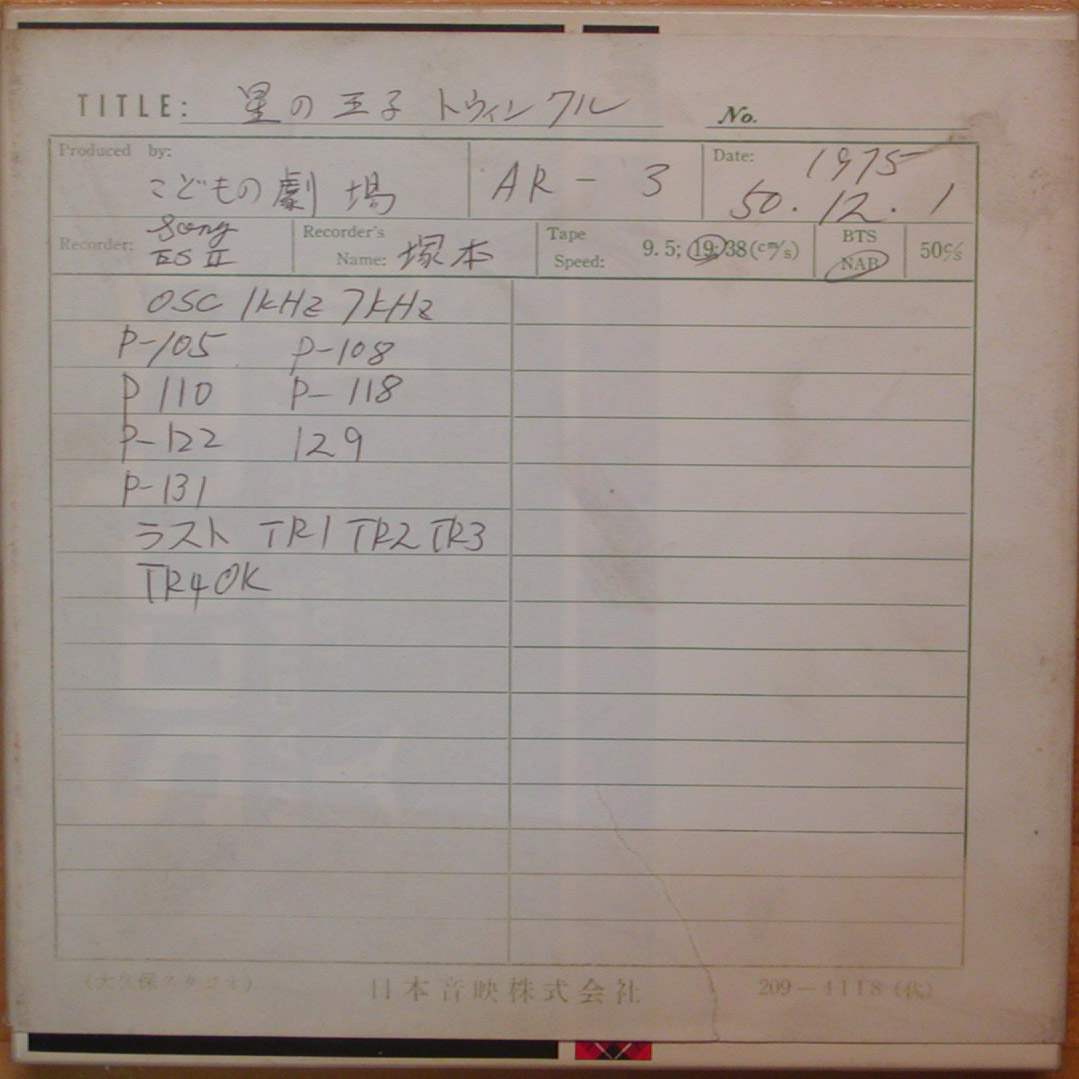 TITLE: 星の王子 トウィンクル No.
Produced by: こどもの劇場 AR-3 Date: 1975
50.12.1
Recorder: Sony
ES II
Recorder's Name: 塚本
Tape Speed: 9.5; 19; 38(cm/s)
BTS
NAB
50c/s
OSC 1kHz 7kHz
P-105 P-108
P 110 P-118
P-122 129
P-131
ラスト TR1 TR2 TR3
TR4 OK
(大久保スタジオ) 日本音映株式会社 209-4118(代)